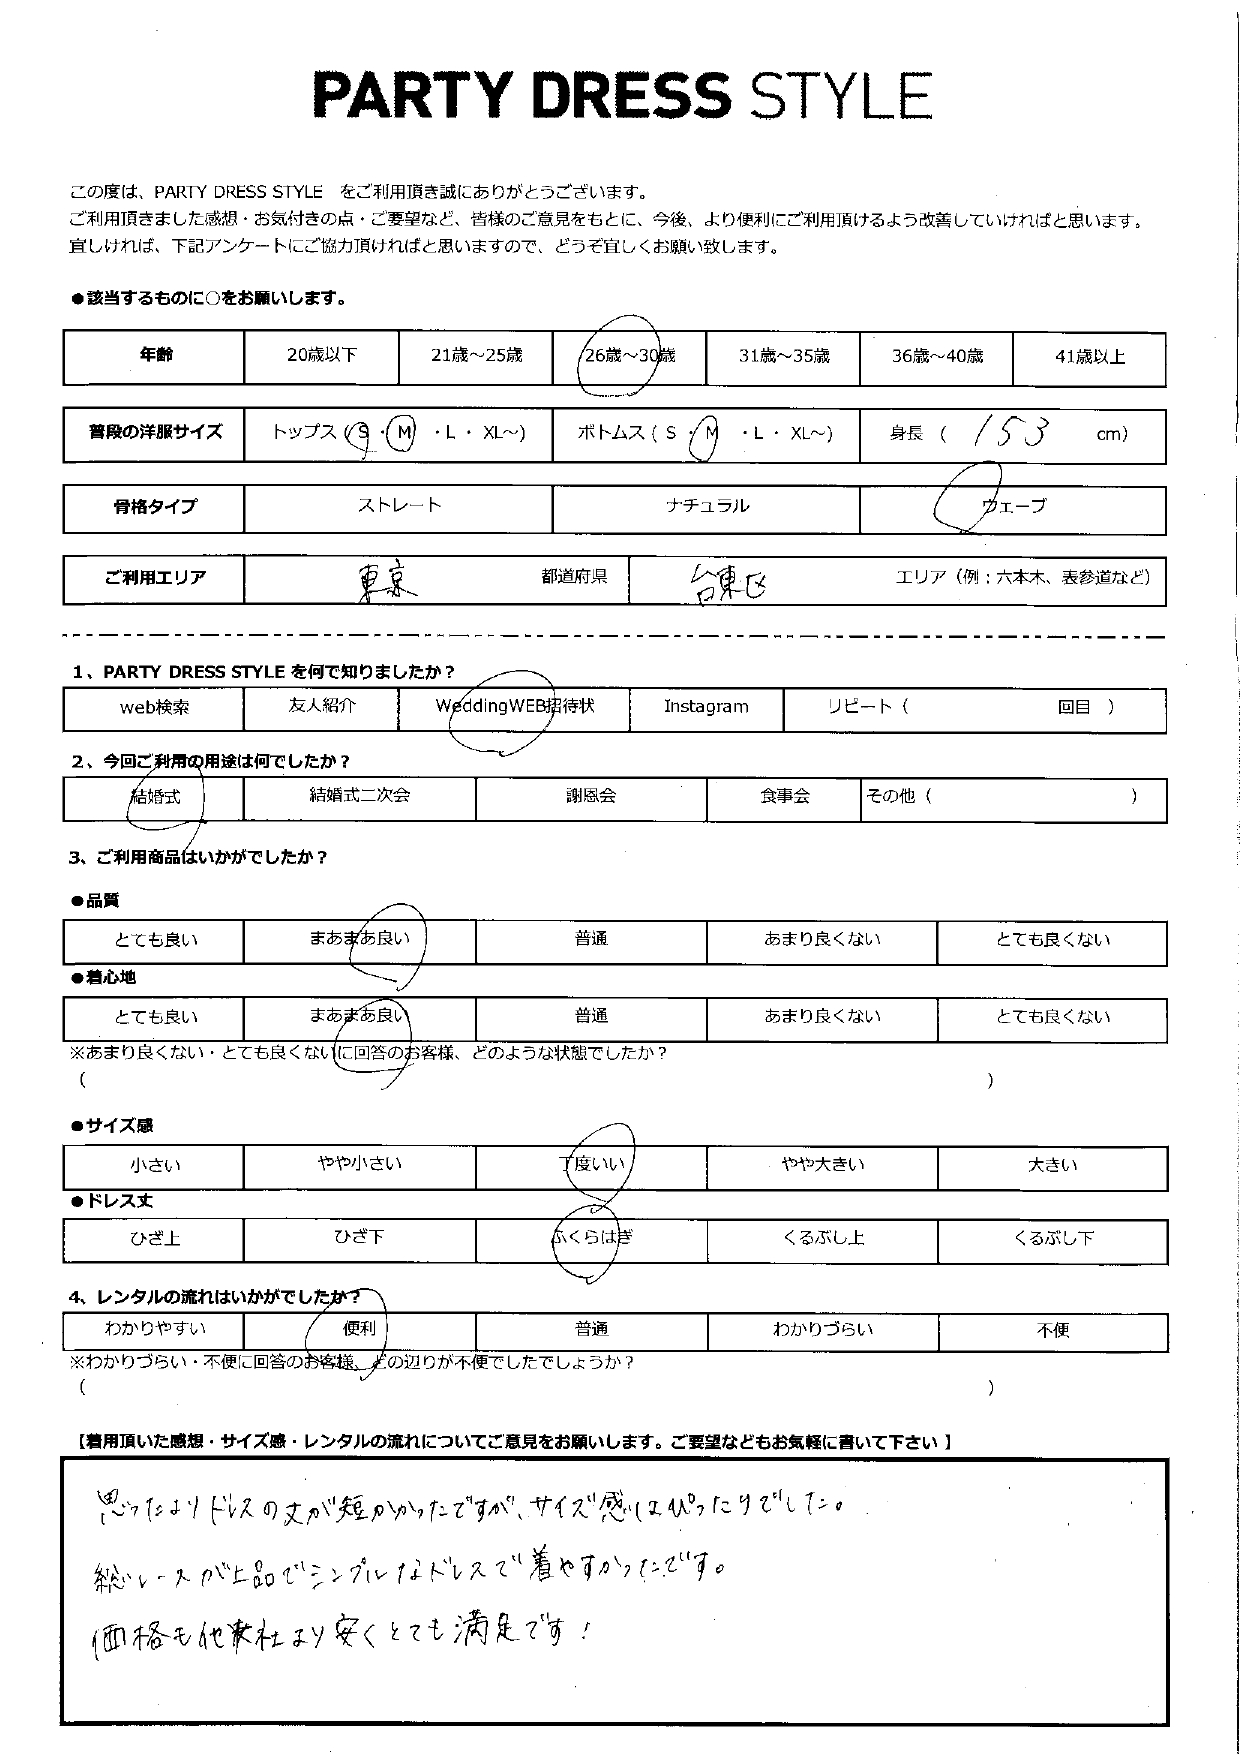 PARTY DRESS STYLE
この度は、PARTY DRESS STYLE をご利用頂き誠にありがとうございます。
ご利用頂きました感想・お気付きの点・ご要望など、皆様のご意見をもとに、今後、より便利にご利用頂けるよう改善していければと思います。
宜しければ、下記アンケートにご協力頂ければと思いますので、どうぞ宜しくお願い致します。
●該当するものに○をお願いします。
年齢 20歳以下 21歳～25歳 26歳～30歳 31歳～35歳 36歳～40歳 41歳以上
普段の洋服サイズ トップス ( S ・ M ・ L ・ XL～) ボトムス ( S ・ M ・ L ・ XL～) 身長 ( 153 cm)
骨格タイプ ストレート ナチュラル ウェーブ
ご利用エリア 東京 都道府県 台東区 エリア（例：六本木、表参道など）
1、PARTY DRESS STYLE を何で知りましたか？
web検索 友人紹介 WeddingWEB招待状 Instagram リピート（ 回目 ）
2、今回ご利用の用途は何でしたか？
結婚式 結婚式二次会 謝恩会 食事会 その他（ ）
3、ご利用商品はいかがでしたか？
●品質
とても良い まあまあ良い 普通 あまり良くない とても良くない
●着心地
とても良い まあまあ良い 普通 あまり良くない とても良くない
※あまり良くない・とても良くないに回答のお客様、どのような状態でしたか？
( )
●サイズ感
小さい やや小さい 丁度いい やや大きい 大きい
●ドレス丈
ひざ上 ひざ下 ふくらはぎ くるぶし上 くるぶし下
4、レンタルの流れはいかがでしたか？
わかりやすい 便利 普通 わかりづらい 不便
※わかりづらい・不便に回答のお客様、どの辺りが不便でしたでしょうか？
( )
【着用頂いた感想・サイズ感・レンタルの流れについてご意見をお願いします。ご要望などもお気軽に書いて下さい】
思ったよりドレスの丈が短かかったですが、サイズ感はぴったりでした。
総レースが上品でシンプルなドレスで着やすかったです。
価格も他社より安くとても満足です！